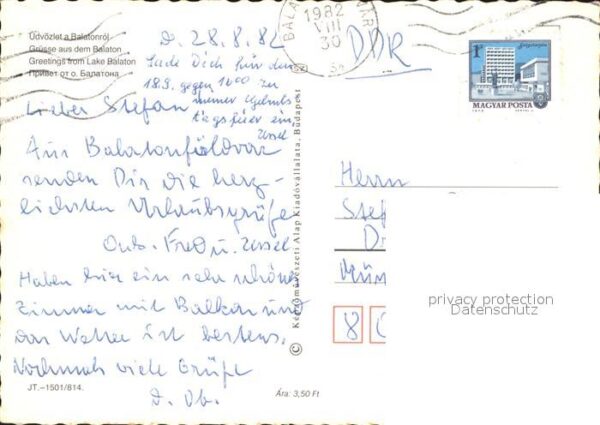 Üdvözlet a Balatonról
Grüsse aus dem Balaton
Greetings from Lake Balaton
Привет от о. Балатона
D. 28.8.82
Lade Dich für den
18.9. gegen 1600 zu
meiner Geburts
tagsfeier ein,
Ussel
Lieber Stefan
Aus Balatonföldvar
senden Dir die herz-
lichsten Urlaubsgrüße
Onk. Fred u. Ussel
Haben hier ein sehr schönes
Zimmer mit Balkon und
das Wetter ist bestens.
Nochmals viele Grüße
D. Ob.
JT.–1501/814.
Ára: 3,50 Ft
© Képzőművészeti Alap Kiadóvállalata, Budapest
1982
VIII
30
DDR
1Ft
MAGYAR POSTA
Herrn
Stef
D
privacy protection
Datenschutz
8